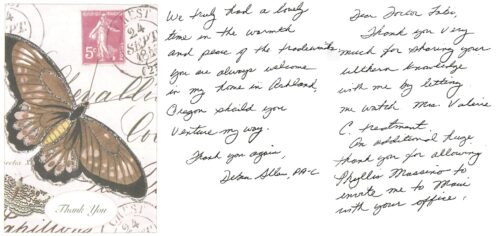 5c
24
SEPT
Thank You
24
We truly had a lovely
time in the warmth
and peace of the tradewinds
you are always welcome
in my home in Ashland,
Oregon should you
Venture my way.
Thank you again,
PA-C
Dear
Thank you very
much for sharing your
knowledge
with me by letting
me watch Mrs. Valerie
C. treatment.
An additional huge
thank you for allowing
Phyllis Massimo to
invite me to Maui
with your office!